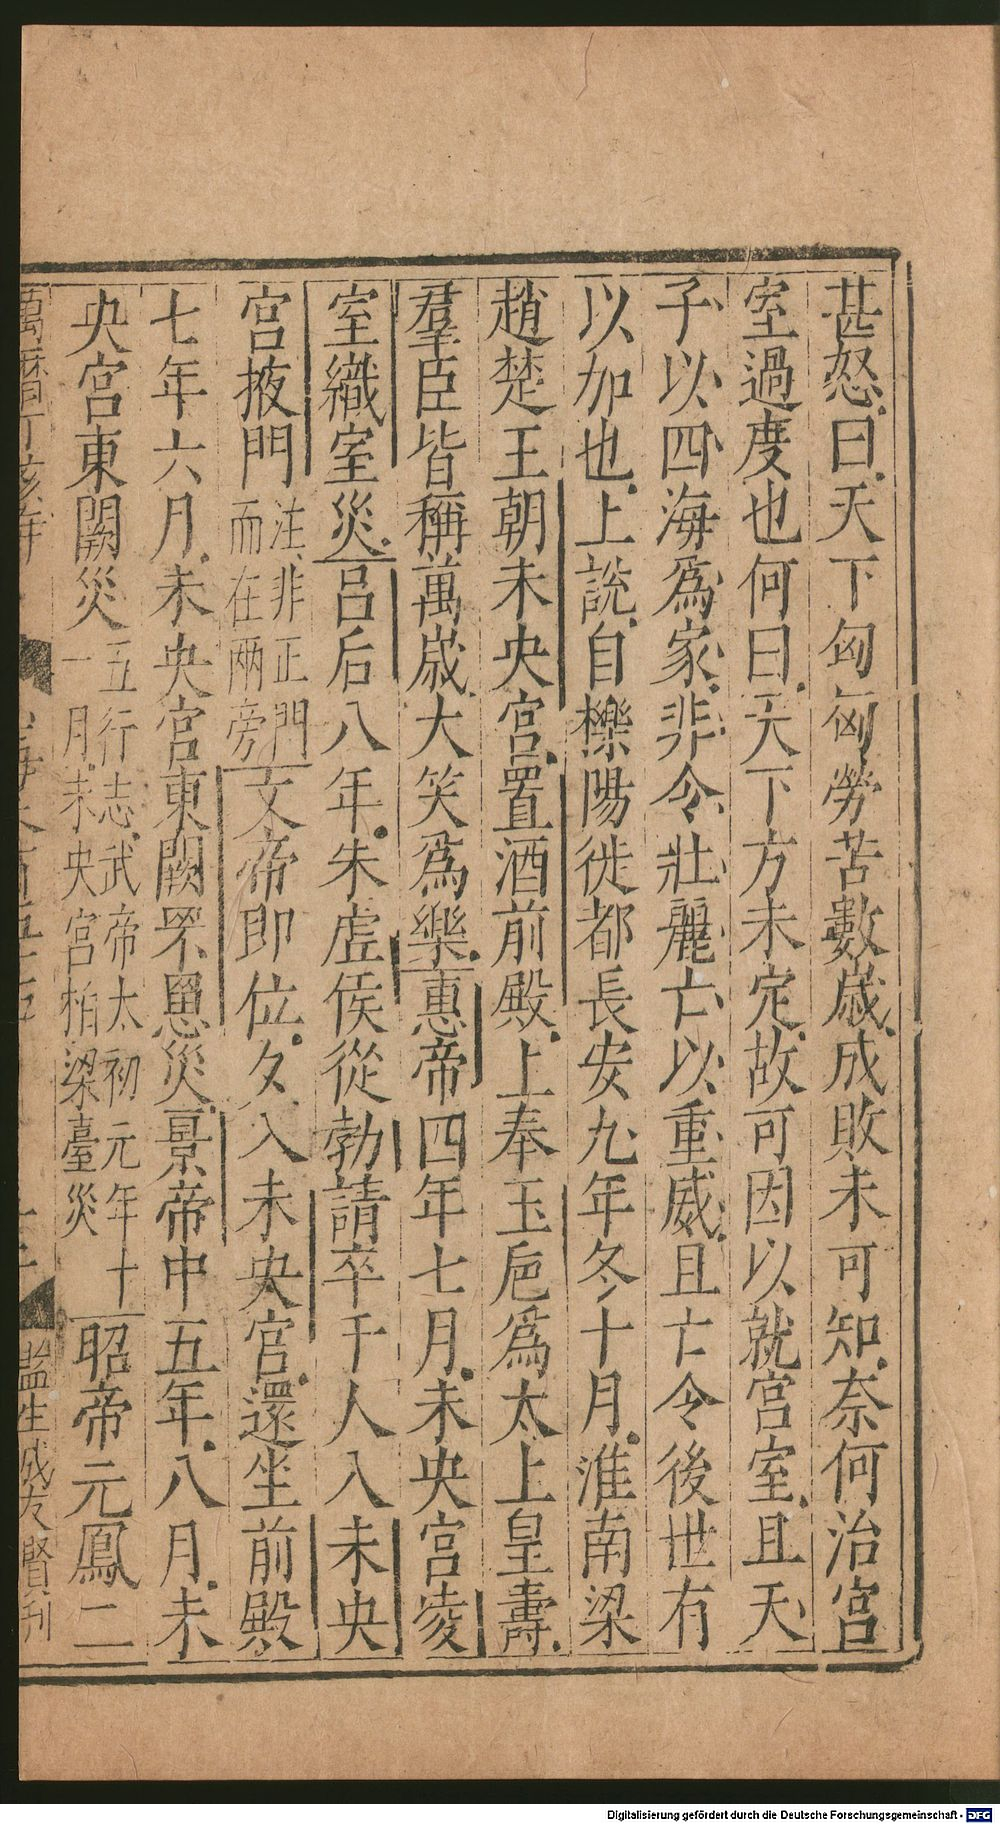 甚怒曰天下匈匈勞苦數歲成敗未可知奈何治宮
室過度也何曰天下方未定故可因以就宮室且天
子以四海爲家非令壯麗亡以重威且亡令後世有
以加也上說自櫟陽徙都長安九年冬十月淮南梁
趙楚王朝未央宮置酒前殿上奉玉卮爲太上皇壽
羣臣皆稱萬歲大笑爲樂惠帝四年七月未央宮凌
室織室災呂后八年朱虛侯從勃請卒千人入未央
宮掖門注非正門而在兩旁文帝即位夕入未央宮還坐前殿
七年六月未央宮東闕罘罳災景帝中五年八月未
央宮東闕災五行志武帝太初元年十一月未央宮柏梁臺災昭帝元鳳二
監生戚友賢刊
Digitalisierung gefördert durch die Deutsche Forschungsgemeinschaft - DFG